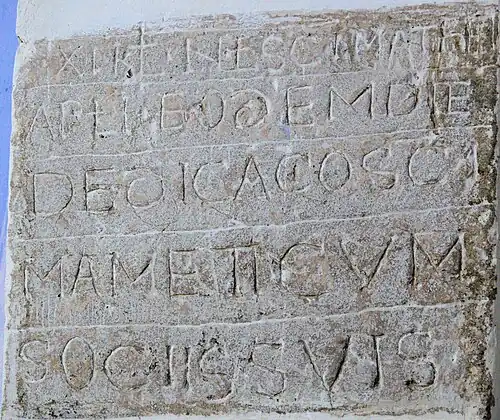 XI SCI
APLI EODEM DIE
DEDICACO SCI
MAMETI CVM
SOCIIS SVIS